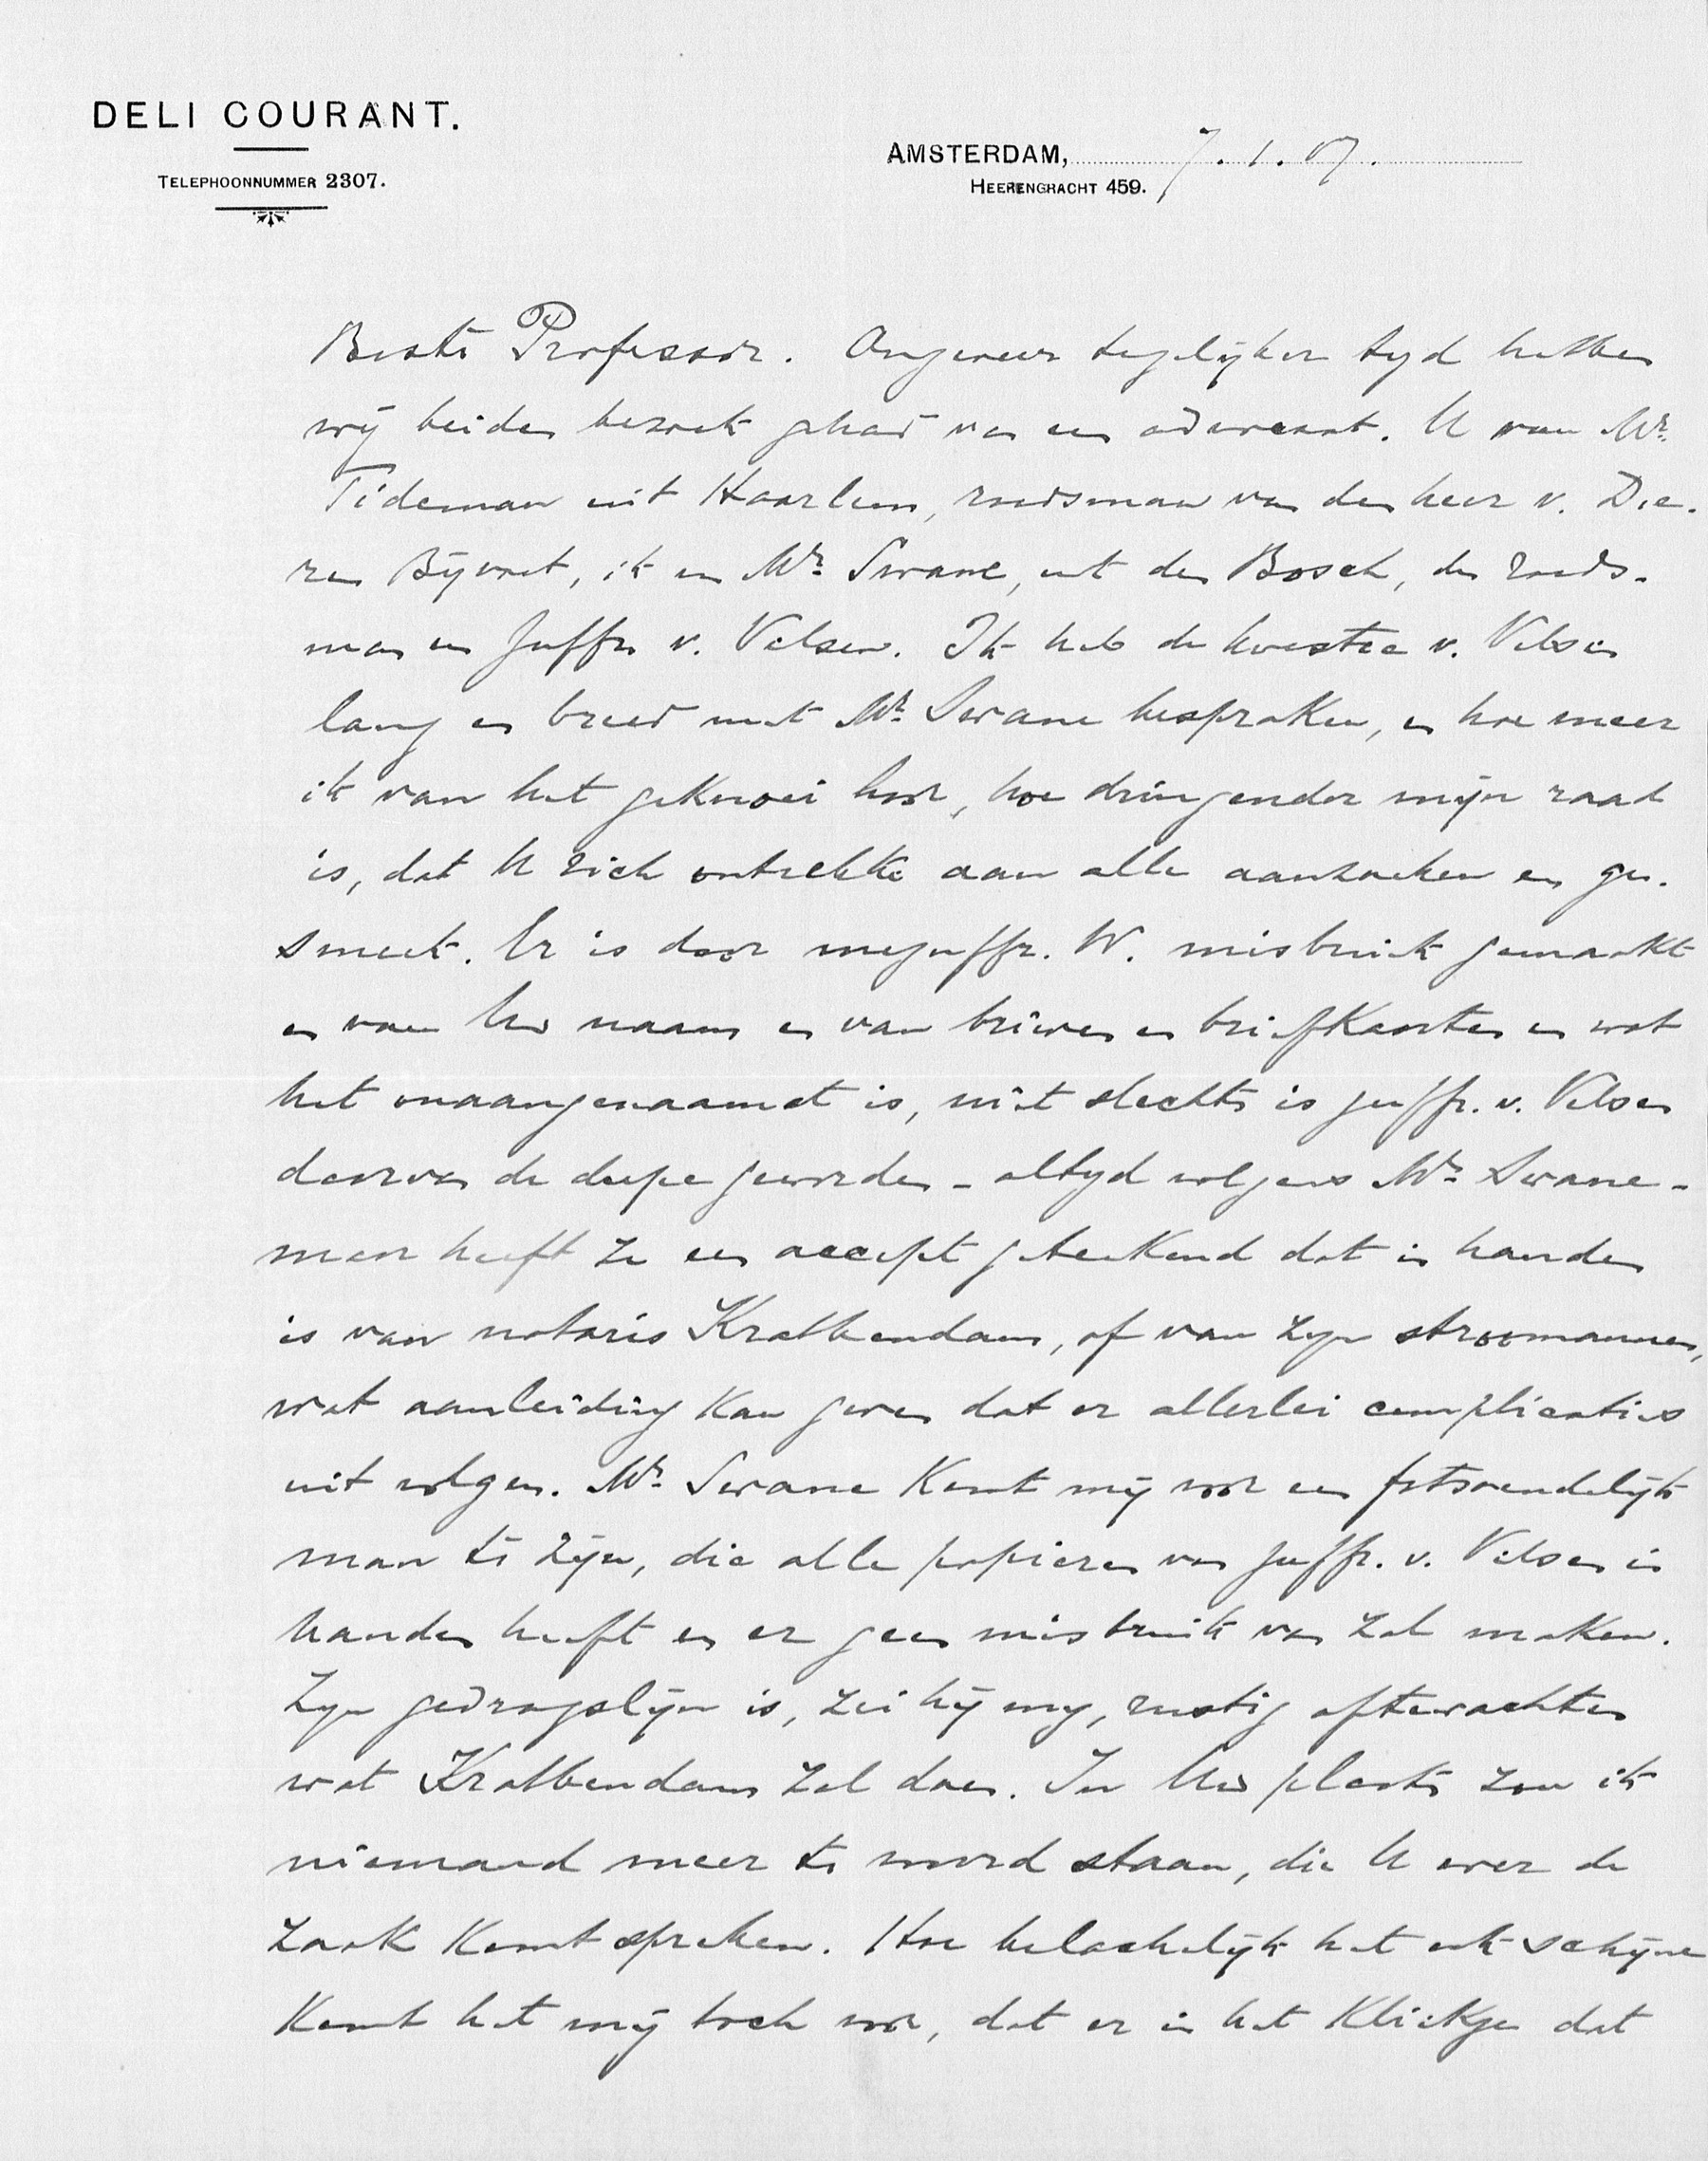 DELI COURANT.
TELEPHOONNUMMER 2307.
AMSTERDAM, 7.1.07.
HEERENGRACHT 459.
Beste Professor. Ongeveer tegelijker tyd hebben
wij beiden bezoek gehad van een advocaat. U van Mr.
Tideman uit Haarlem, raadsman van den heer v. Die-
ren Bijvoet, ik en Mr. Swane, uit den Bosch, den raads-
man en Juffr. v. Velsen. Ik heb de kwestie v. Velsen
lang en breed met Mr. Swane besproken, en hoe meer
ik van het geknoei hoor, hoe dringender mijn raad
is, dat U zich onttrekke aan alle aanzoeken en ge-
smeek. Er is door mejuffr. W. misbruik gemaakt
en van Uw naam en van brieven en briefkaarten en wat
het onaangenaamst is, niet slechts is juffr. v. Velsen
daarvan de dupe geworden - altyd volgens Mr. Swane -
maar heeft ze een accept geteekend dat in handen
is van notaris Krabbendam, of van zyn stroomannen,
wat aanleiding kan geven dat er allerlei complicaties
uit volgen. Mr. Swane komt mij voor een fatsoendelijk
man te zijn, die alle papieren van juffr. v. Velsen in
handen heeft en er geen misbruik van zal maken.
Zyn gedragslijn is, zei hij my, rustig aftewachten
wat Krabbendam zal doen. In Uw plaats zou ik
niemand meer te woord staan, die U over de
zaak komt spreken. Hoe belachelijk het ook schijne
komt het mij toch voor, dat er in het kliekje dat